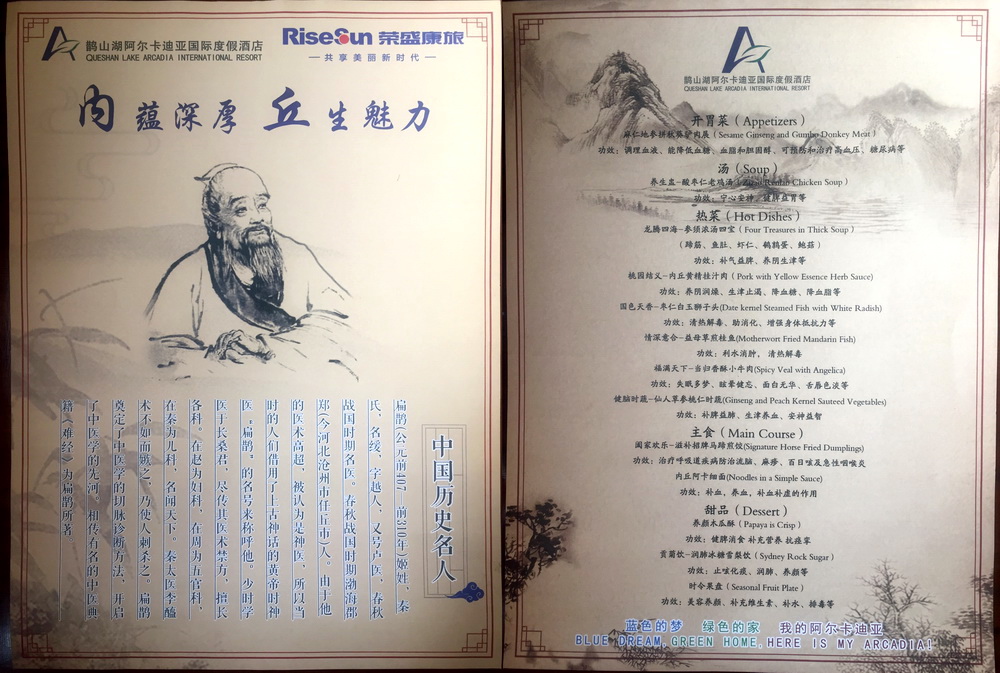 鹊山湖阿尔卡迪亚国际度假酒店
QUESHAN LAKE ARCADIA INTERNATIONAL RESORT
RiseSun 荣盛康旅
共享美丽新时代
内蕴深厚 丘生魅力
中国历史名人
扁鹊(公元前407—前310年)姬姓，秦
氏，名缓，字越人，又号卢医，春秋
战国时期名医。春秋战国时期渤海郡
郑(今河北沧州市任丘市)人。由于他
的医术高超，被认为是神医，所以当
时的人们借用了上古神话的黄帝时神
医“扁鹊”的名号来称呼他。少时学
医于长桑君，尽传其医术禁方，擅长
各科。在赵为妇科，在周为五官科，
在秦为儿科，名闻天下。秦太医李醯
术不如而嫉之，乃使人刺杀之。扁鹊
奠定了中医学的切脉诊断方法，开启
了中医学的先河。相传有名的中医典
籍《难经》为扁鹊所著
鹊山湖阿尔卡迪亚国际度假酒店
QUESHAN LAKE ARCADIA INTERNATIONAL RESORT
开胃菜（Appetizers）
麻仁地参拼秋葵驴肉展（Sesame Ginseng and Gumbo Donkey Meat）
功效：调理血液、能降低血糖、血脂和胆固醇、可预防和治疗高血压、糖尿病等
汤（Soup）
养生盅-酸枣仁老鸡汤（Zizui Renlin Chicken Soup）
功效：宁心安神、健脾益胃等
热菜（Hot Dishes）
龙腾四海-参须浓汤四宝（Four Treasures in Thick Soup）
（蹄筋、鱼肚、虾仁、鹌鹑蛋、鲍菇）
功效：补气益脾、养阴生津等
桃园结义-内丘黄精挂汁肉（Pork with Yellow Essence Herb Sauce)
功效：养阴润燥、生津止渴、降血糖、降血脂等
国色天香-枣仁白玉狮子头(Date kernel Steamed Fish with White Radish)
功效：清热解毒、助消化、增强身体抵抗力等
情深意合-益母草煎桂鱼(Motherwort Fried Mandarin Fish)
功效：利水消肿，清热解毒
福满天下-当归香酥小牛肉(Spicy Veal with Angelica)
功效：失眠多梦、眩晕健忘、面白无华、舌唇色淡等
健脑时蔬-仙人草参桃仁时蔬(Ginseng and Peach Kernel Sauteed Vegetables)
功效：补脾益肺、生津养血、安神益智
主食（Main Course）
阖家欢乐-滋补招牌马蹄煎饺(Signature Horse Fried Dumplings)
功效：治疗呼吸道疾病防治流脑、麻疹、百日咳及急性咽喉炎
内丘阿卡细面(Noodles in a Simple Sauce)
功效：补血，养血，补血补虚的作用
甜品（Dessert）
养颜木瓜酥（Papaya is Crisp）
功效：健脾消食 补充营养 抗痉挛
贡菊饮-润肺冰糖雪梨饮（Sydney Rock Sugar）
功效：止咳化痰、润肺、养颜等
时令果盘（Seasonal Fruit Plate）
功效：美容养颜、补充维生素、补水、排毒等
蓝色的梦 绿色的家 我的阿尔卡迪亚
BLUE DREAM,GREEN HOME,HERE IS MY ARCADIA!